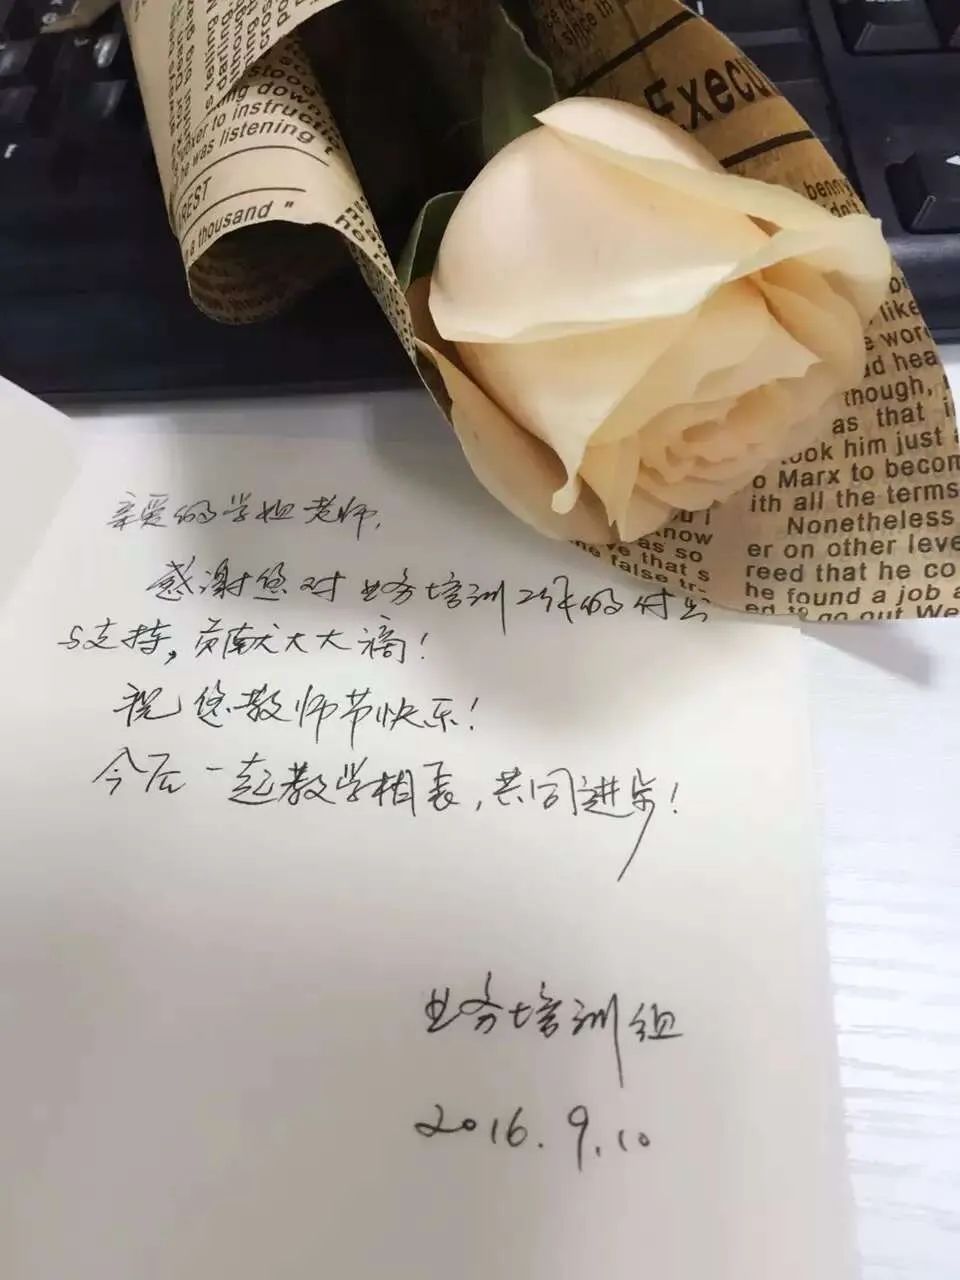 since in
is telling
darling,
stood
ng down
oxer to instructi
he was listening t
REST
a thousand "
Execu
benny
like
wor
ad hea
though,
as that i
took him just a
o Marx to becom
ith all the terms
Nonetheless
er on other leve
reed that he co
he found a job a
ed to go out We
now
as so
e that s
false tr-
亲爱的学姐老师,
感谢您对业务培训工作的付出
与支持,贡献大大滴!
祝您教师节快乐!
今后一起教学相长,共同进步!
业务培训组
2016.9.10